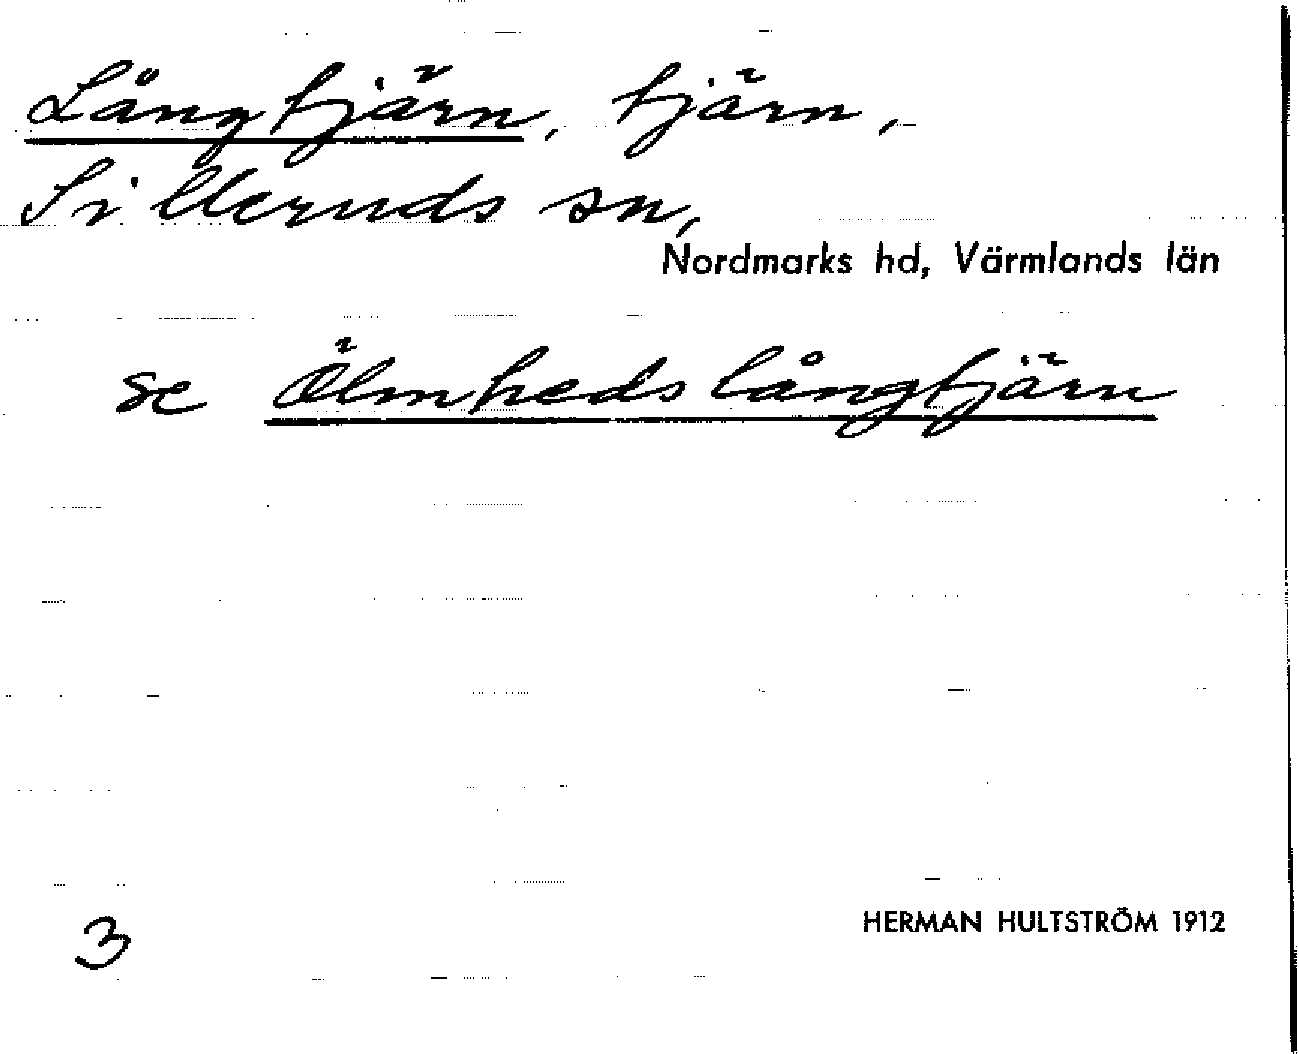 Långtjärn, tjärn,
Silleruds sn,
Nordmarks hd, Värmlands län
se Ölmhedslångtjärn
3
HERMAN HULTSTRÖM 1912